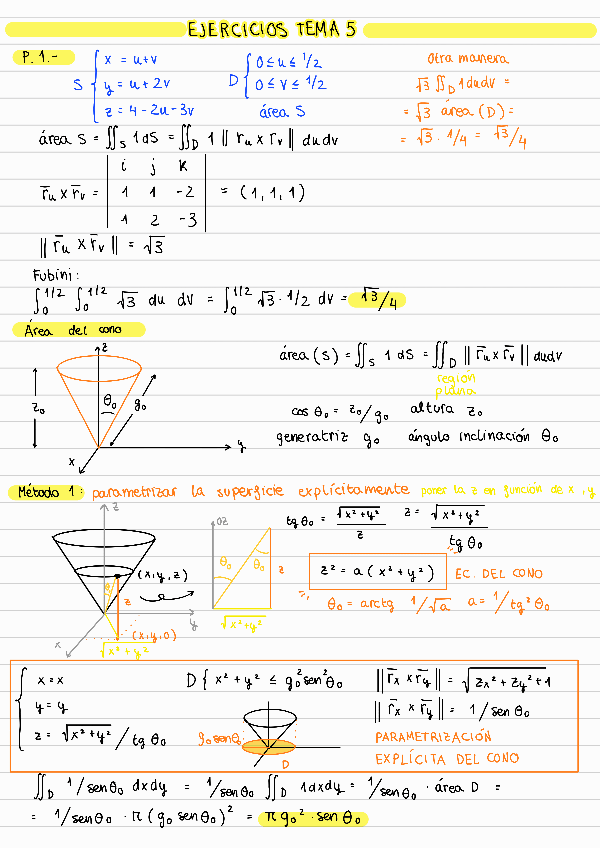 EJERCICIOS TEMA 5
P.1.-
S { x = u+v
y = u+2v
z = 4-2u-3v
D { 0≤u≤1/2
0≤v≤1/2
área S
Otra manera
√3 ∬_D 1dudv =
= √3 área (D) =
= √3 · 1/4 = √3/4
área S = ∬_S 1dS = ∬_D 1 || ru x rv || dudv
r̄u x r̄v = | i j k |
| 1 1 -2 | = (1,1,1)
| 1 2 -3 |
|| r̄u x r̄v || = √3
Fubini:
∫_0^1/2 ∫_0^1/2 √3 du dv = ∫_0^1/2 √3 · 1/2 dv = √3/4
Área del cono
z
z₀
θ₀
g₀
y
x
área (S) = ∬_S 1 dS = ∬_D || r̄u x r̄v || dudv
región
plana
cos θ₀ = z₀/g₀ altura z₀
generatriz g₀ ángulo inclinación θ₀
Método 1: parametrizar la superficie explícitamente poner la z en función de x, y
z
(x,y,z)
z
y
x
(x,y,0)
√x²+y²
OZ
θ₀ θ₀
z
√x²+y²
tg θ₀ = √x²+y² / z
z = √x²+y² / tg θ₀
z² = a (x²+y²) EC. DEL CONO
θ₀ = arctg 1/√a a = 1/tg²θ₀
{ x = x
y = y
z = √x²+y² / tg θ₀
D { x²+y² ≤ g₀² sen²θ₀
g₀ senθ₀
D
|| r̄x x r̄y || = √zx²+zy²+1
|| r̄x x r̄y || = 1/sen θ₀
PARAMETRIZACIÓN
EXPLÍCITA DEL CONO
∬_D 1/senθ₀ dxdy = 1/senθ₀ ∬_D 1dxdy = 1/senθ₀ · área D =
= 1/senθ₀ · π (g₀ senθ₀)² = πg₀² · sen θ₀